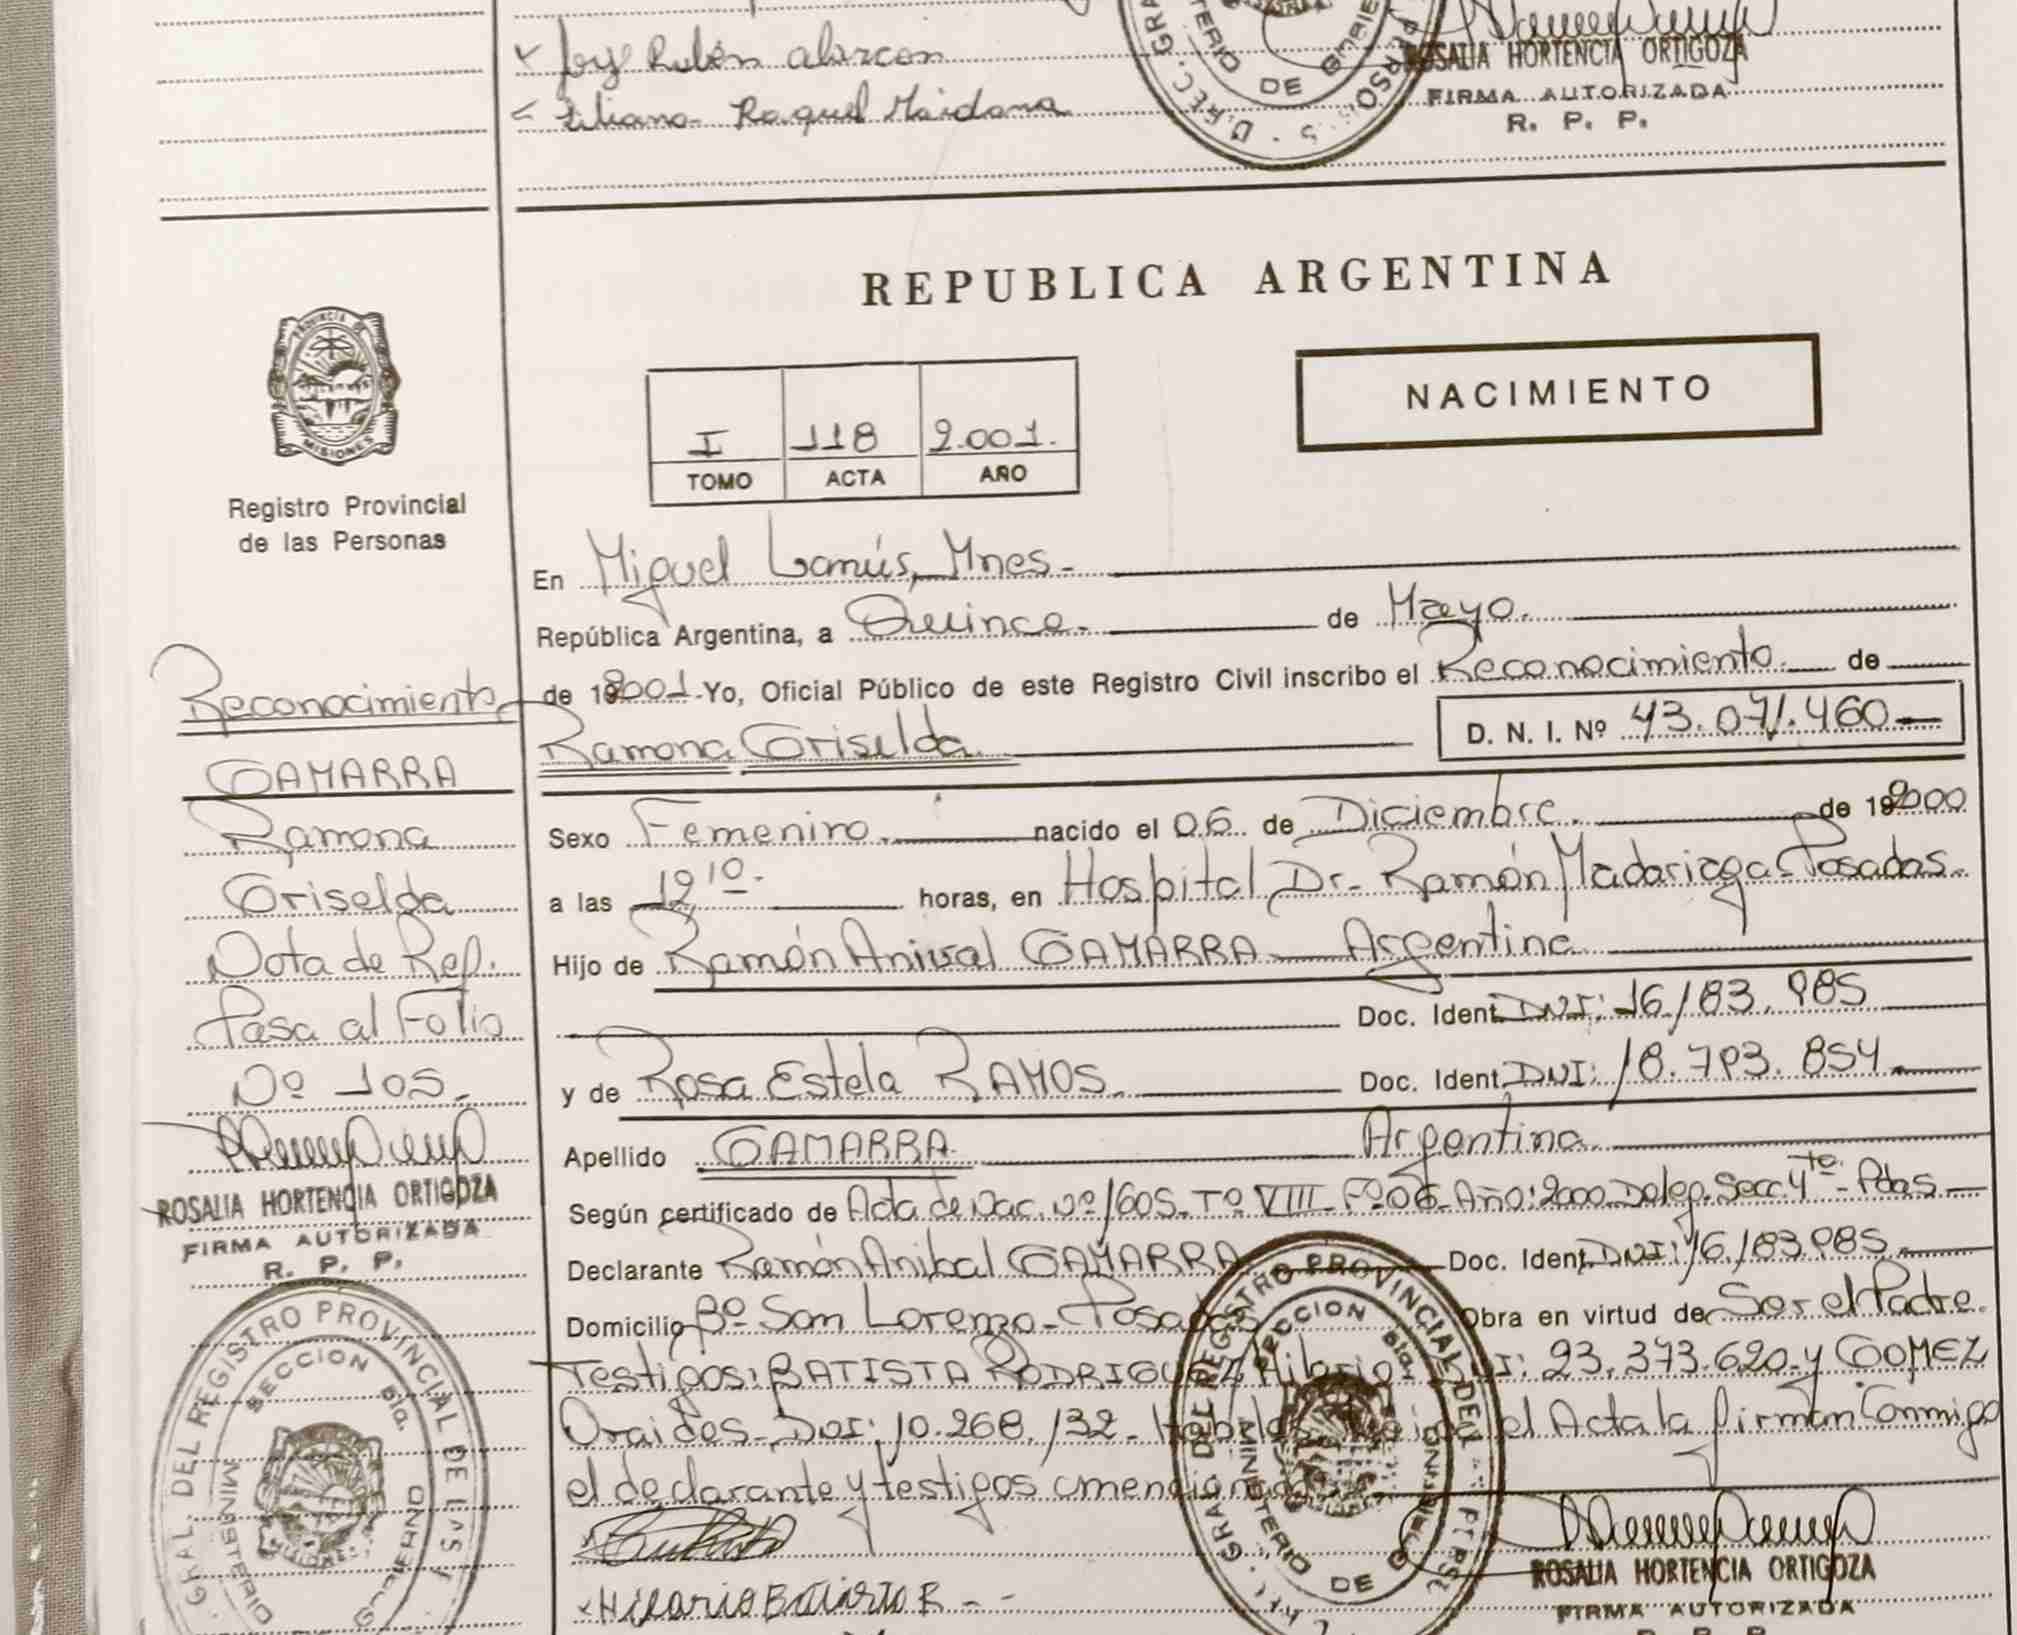 Rubén Alarcon
Liliana Raquel Maidana
ROSALIA HORTENCIA ORTIGOZA
FIRMA AUTORIZADA
R. P. P.
REPUBLICA ARGENTINA
NACIMIENTO
PROVINCIA DE
MISIONES
I 118 2.001.
TOMO ACTA AÑO
Registro Provincial
de las Personas
En Miguel Lanús, Mnes.-
República Argentina, a Quince.- de Mayo.
de 192001.- Yo, Oficial Público de este Registro Civil inscribo el Reconocimiento. de
Ramona Griselda. D. N. I. Nº 43.071.460
Sexo Femenino. nacido el 06 de Diciembre. de 192000
a las 19 10.- horas, en Hospital Dr. Ramón Madariaga-Posadas.
Hijo de Ramón Anival GAMARRA Argentina
Doc. Ident. DNI: 16.183.985
y de Rosa Estela RAMOS. Doc. Ident. DNI: 18.793.854
Apellido GAMARRA. Argentina
Según certificado de Acta de Nac. Nº 1605- Tº VIII- Fº 06- Año: 2000. Deleg. Secc. 4ta.- Pdas
Declarante Ramón Anibal GAMARRA Doc. Ident. DNI: 16.183.985
Domicilio Bº San Lorenzo- Posadas Obra en virtud de Ser el Padre.
Testigos: BATISTA RODRIGUEZ Hilario DNI: 23.373.620- y GOMEZ
Oraides- DNI: 10.268.132- el Acta la firman Conmigo
el declarante y testigos
Hilario Batista R
ROSALIA HORTENCIA ORTIGOZA
FIRMA AUTORIZADA
Reconocimiento
GAMARRA
Ramona
Griselda
Nota de Ref.
Pasa al Folio
Nº 105.
ROSALIA HORTENCIA ORTIGOZA
FIRMA AUTORIZADA
R. P. P.
GRAL. DEL REGISTRO PROVINCIAL DE LAS
SECCION 6ta.
MINISTERIO GOBIERNO
GRAL. DEL REGISTRO PROVINCIAL DE
SECCION 6ta.
MINISTERIO DE GOBIERNO